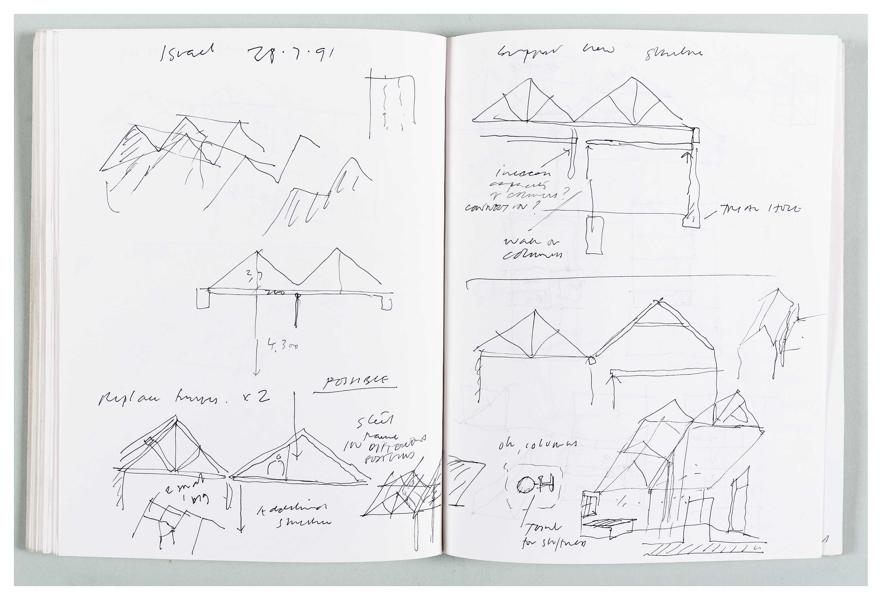 Israel 28.7.91
2,7
200
4,300
Replace trusses. x 2
POSSIBLE
Steel
frame
IN DIFFERENT
POSITIONS
Additional
structure
Support new structure
increase
capacity
of columns?
CONNECTION?
wall or
columns
TRIAL HOLE
columns
for stiffness